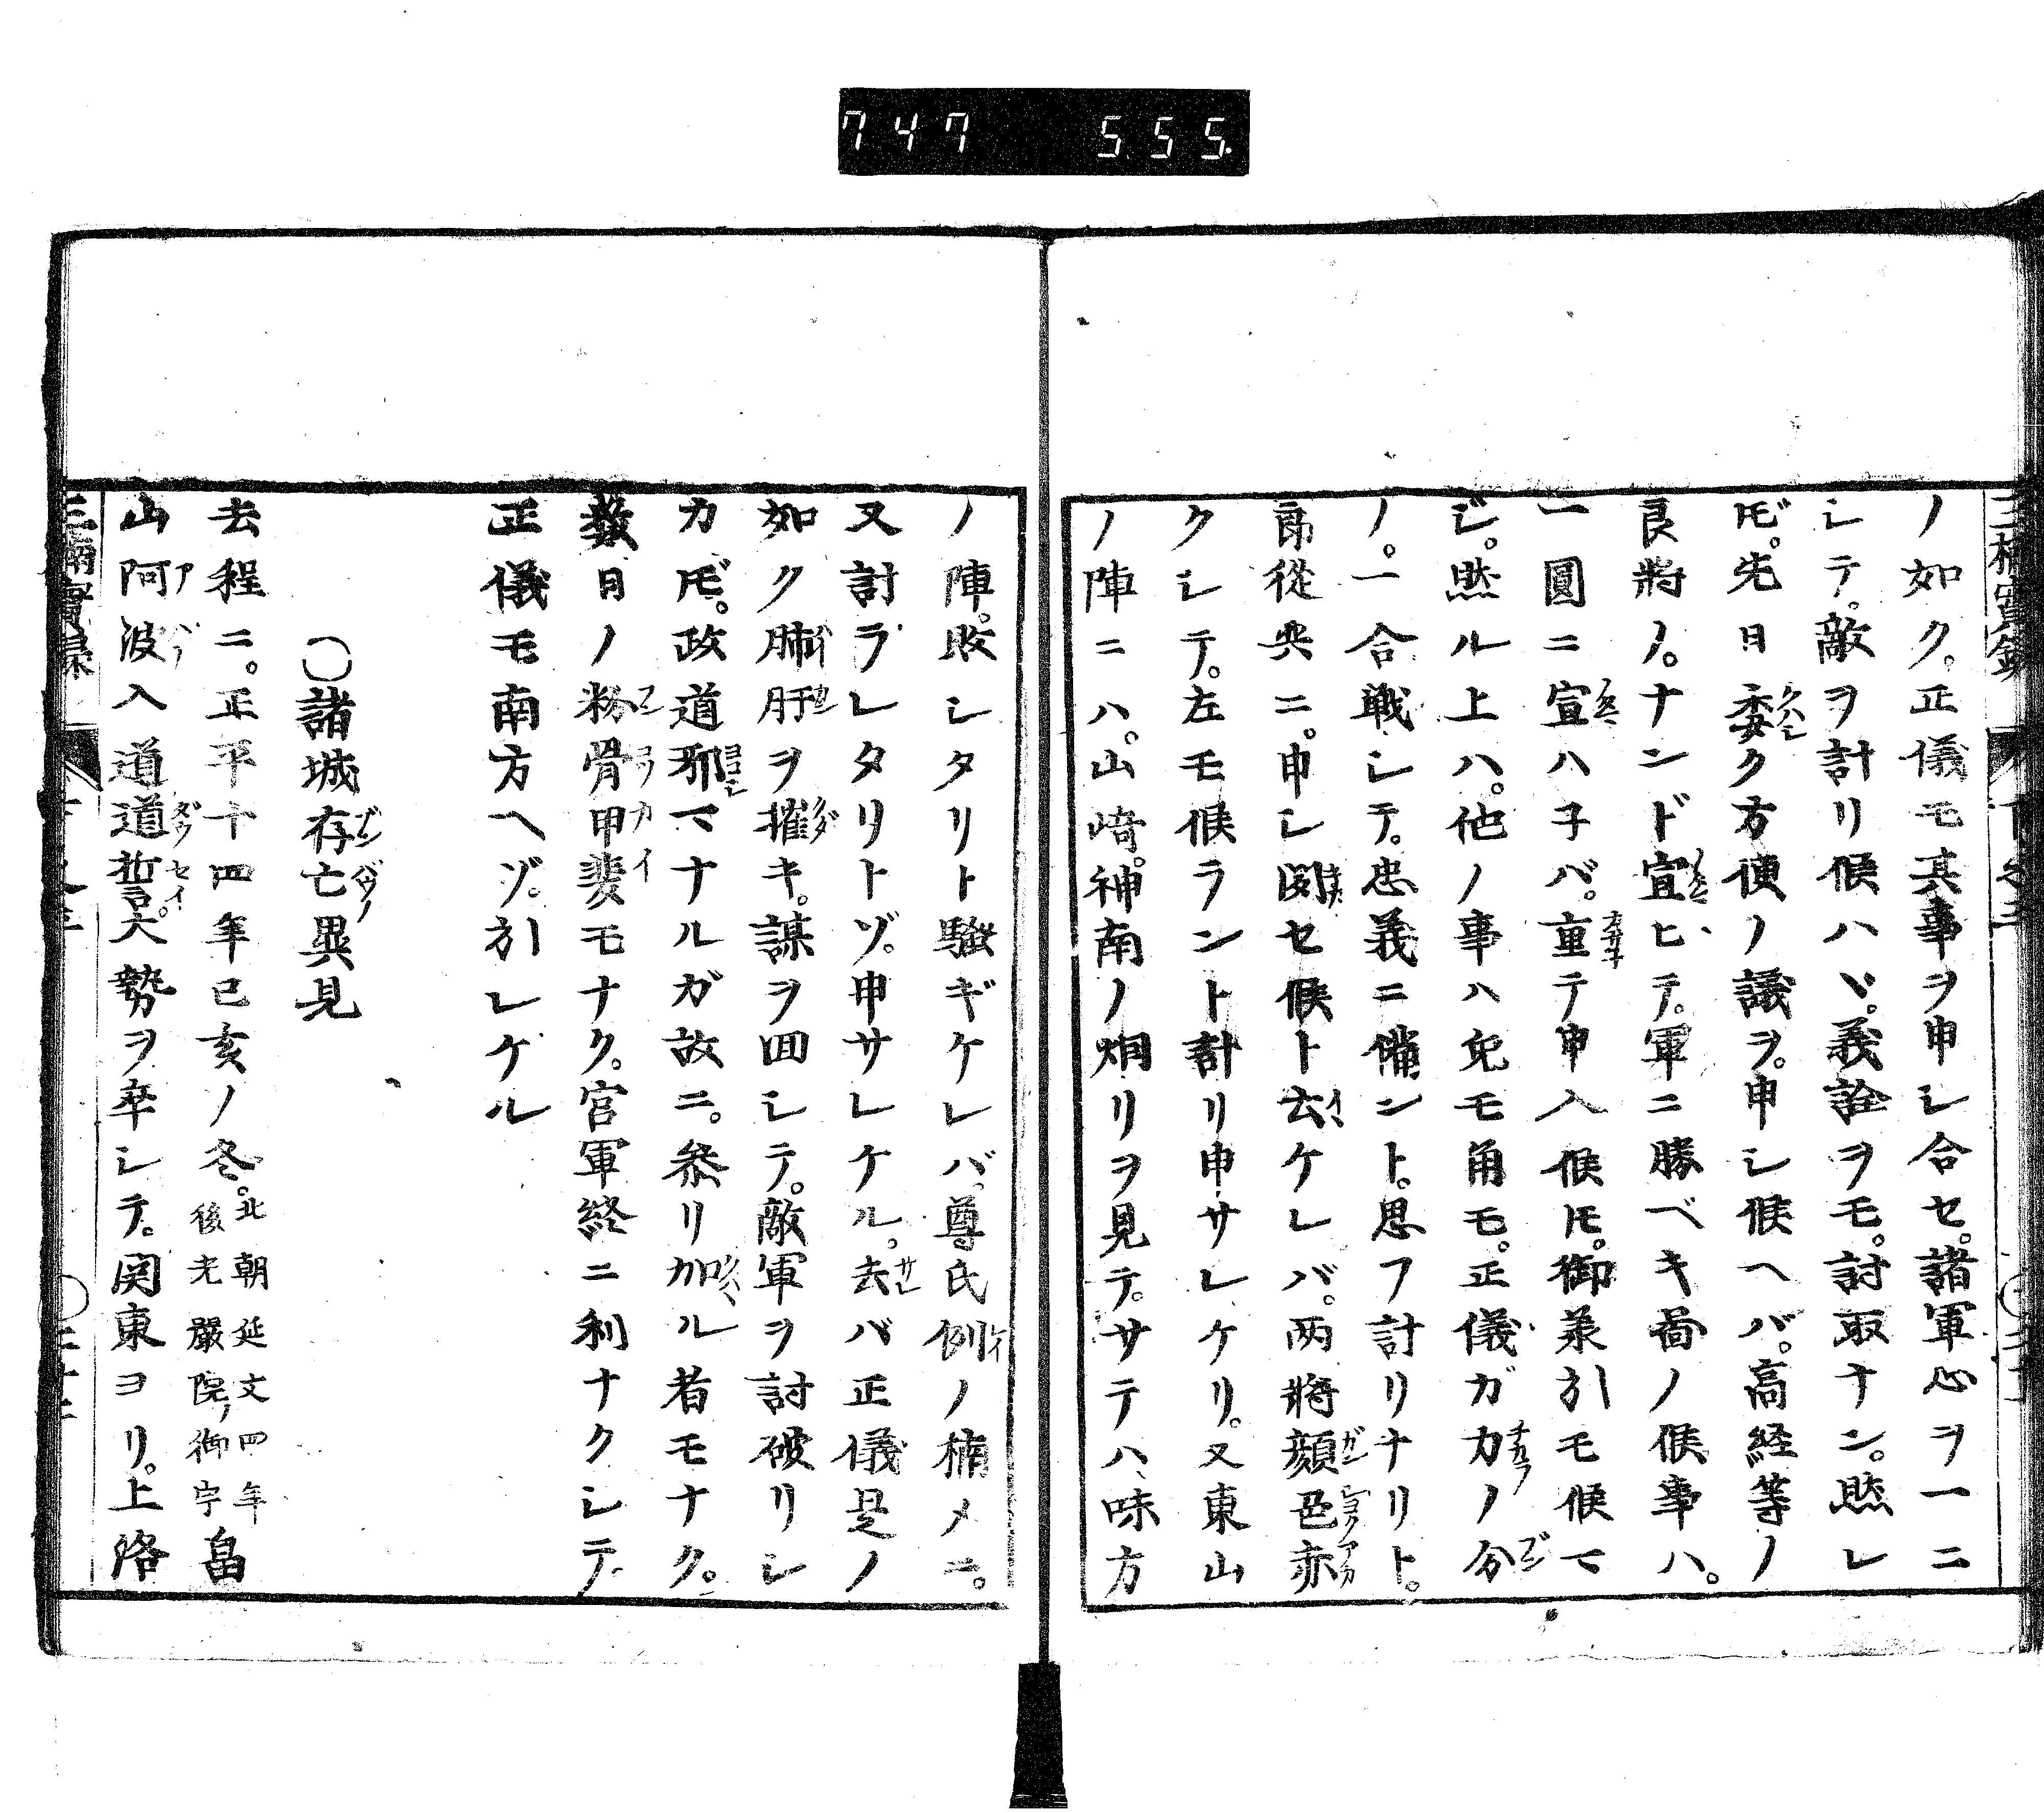 747 555.
ノ如ク。正儀モ其事ヲ申シ合セ。諸軍心ヲ一ニ
シテ。敵ヲ計リ候ハヾ。義詮ヲモ。討取ナン。然レ
ドモ。先日委ク方便ノ議ヲ。申シ候ヘバ。高経等ノ
良將ノ。ナンド宣ヒテ。軍ニ勝ベキ啚ノ候事ハ。
一圓ニ宣ハ子バ。重テ申入候ヘドモ。御承引モ候マ
ジ。然ル上ハ。他ノ事ハ兎モ角モ。正儀ガ力ノ分
ノ。一合戦シテ。忠義ニ備ント。思フ計リナリト。
郎從共ニ。申シ聞セ候ト云ケレバ。两將顔色亦
クシテ。左モ候ラント計リ申サレケリ。又東山
ノ陣ニハ。山崎。神南ノ烟リヲ見テ。サテハ、味方
ノ陣。敗シタリト騒ギケレバ。尊氏例ノ楠メニ。
又討ラレタリトゾ。申サレケル。去バ正儀是ノ
如ク肺肝ヲ摧キ。謀ヲ囬シテ。敵軍ヲ討破リシ
カドモ。政道邪マナルガ故ニ。参リ加ル者モナク。
数日ノ粉骨甲斐モナク。官軍終ニ利ナクシテ
正儀モ南方ヘゾ。引レケル
〇諸城存亡異見
去程ニ。正平十四年己亥ノ冬。北朝延文四年後光嚴院ノ御宇畠
山阿波入道道誓。大勢ヲ卒シテ。関東ヨリ。上洛